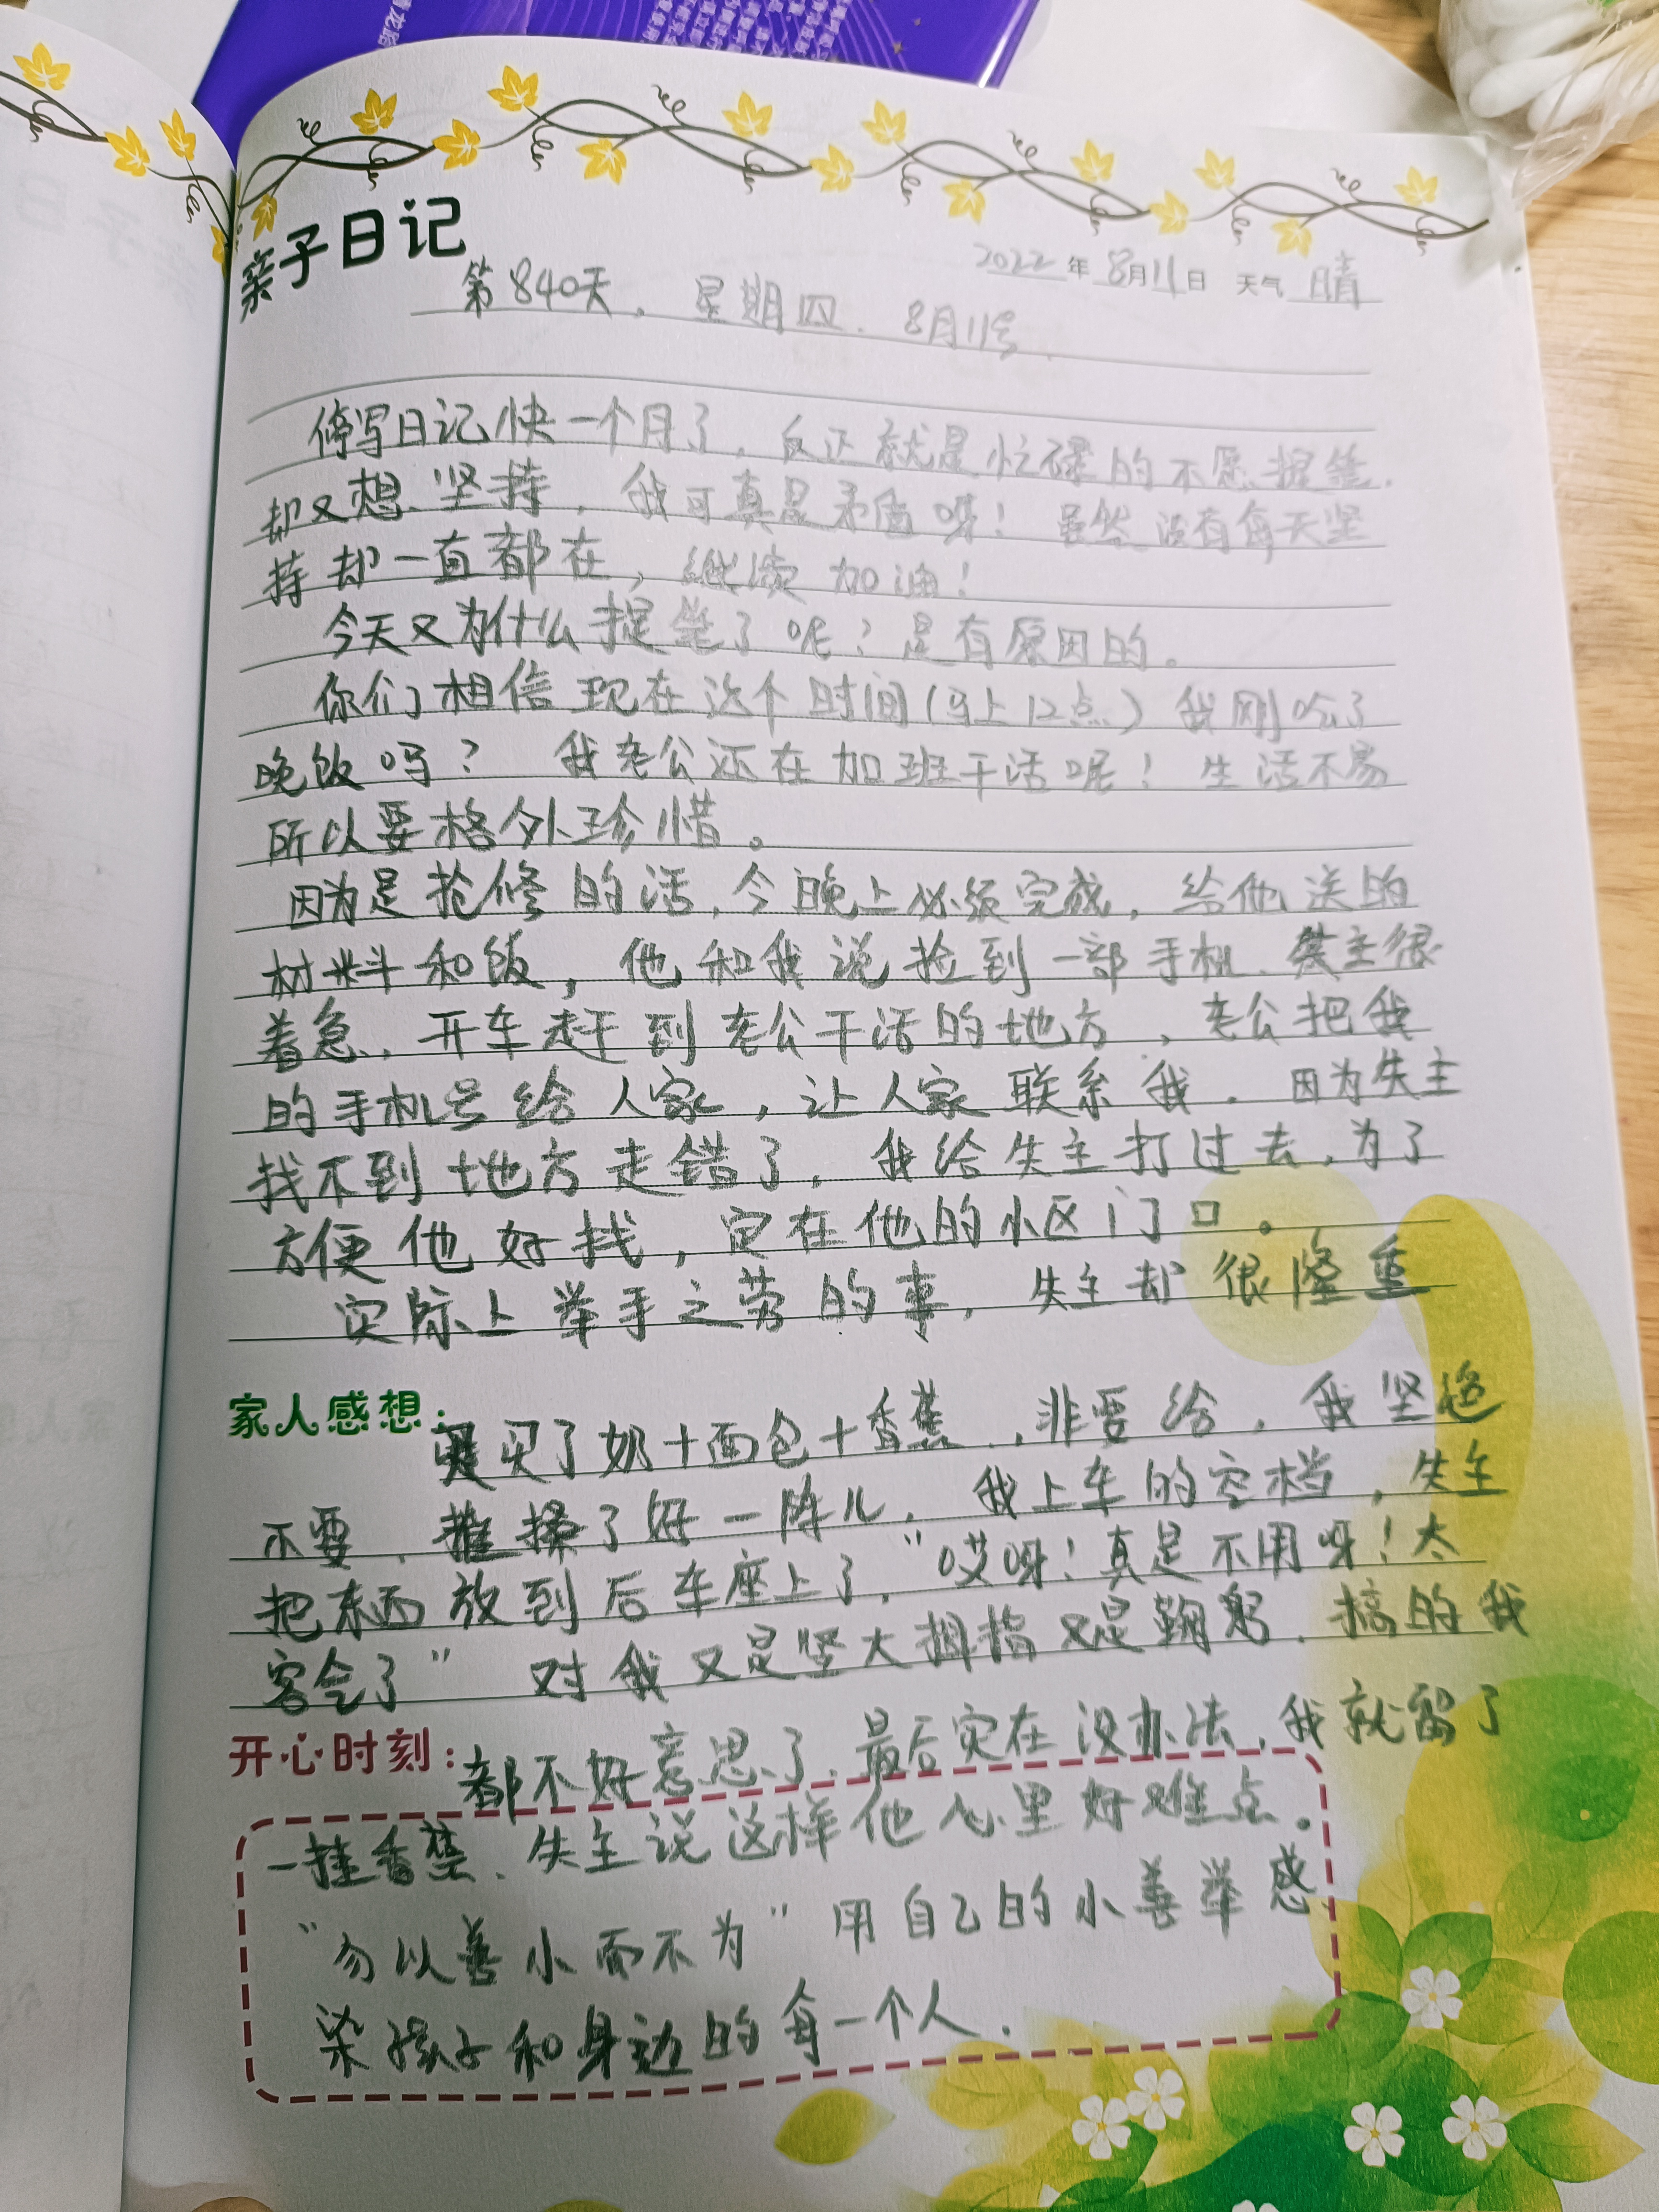 亲子日记
2022年8月11日 天气 晴
第840天，星期四．8月11号．
停写日记快一个月了，反正就是忙碌的不愿提笔．
却又想坚持，我可真是矛盾呀！虽然没有每天坚
持却一直都在，继续加油！
今天又为什么提笔了呢？是有原因的。
你们相信现在这个时间（马上12点）我刚吃了
晚饭吗？ 我老公还在加班干活呢！生活不易
所以要格外珍惜。
因为是抢修的活，今晚上必须完成，给他送的
材料和饭，他和我说捡到一部手机．失主很
着急，开车赶到老公干活的地方，老公把我
的手机号给人家，让人家联系我．因为失主
找不到地方走错了，我给失主打过去，为了
方便他好找，定在他的小区门口。
实际上举手之劳的事，失主却很隆重
家人感想：
买了奶+面包+香蕉，非要给，我坚绝
不要，推搡了好一阵儿．我上车的空档，失主
把东西放到后车座上了，“哎呀！真是不用呀！太
客气了” 对我又是竖大拇指又是鞠躬．搞的我
开心时刻：
都不好意思了．最后实在没办法，我就留了
一挂香蕉．失主说这样他心里好难点．
“勿以善小而不为”用自己的小善举感
染孩子和身边的每一个人．